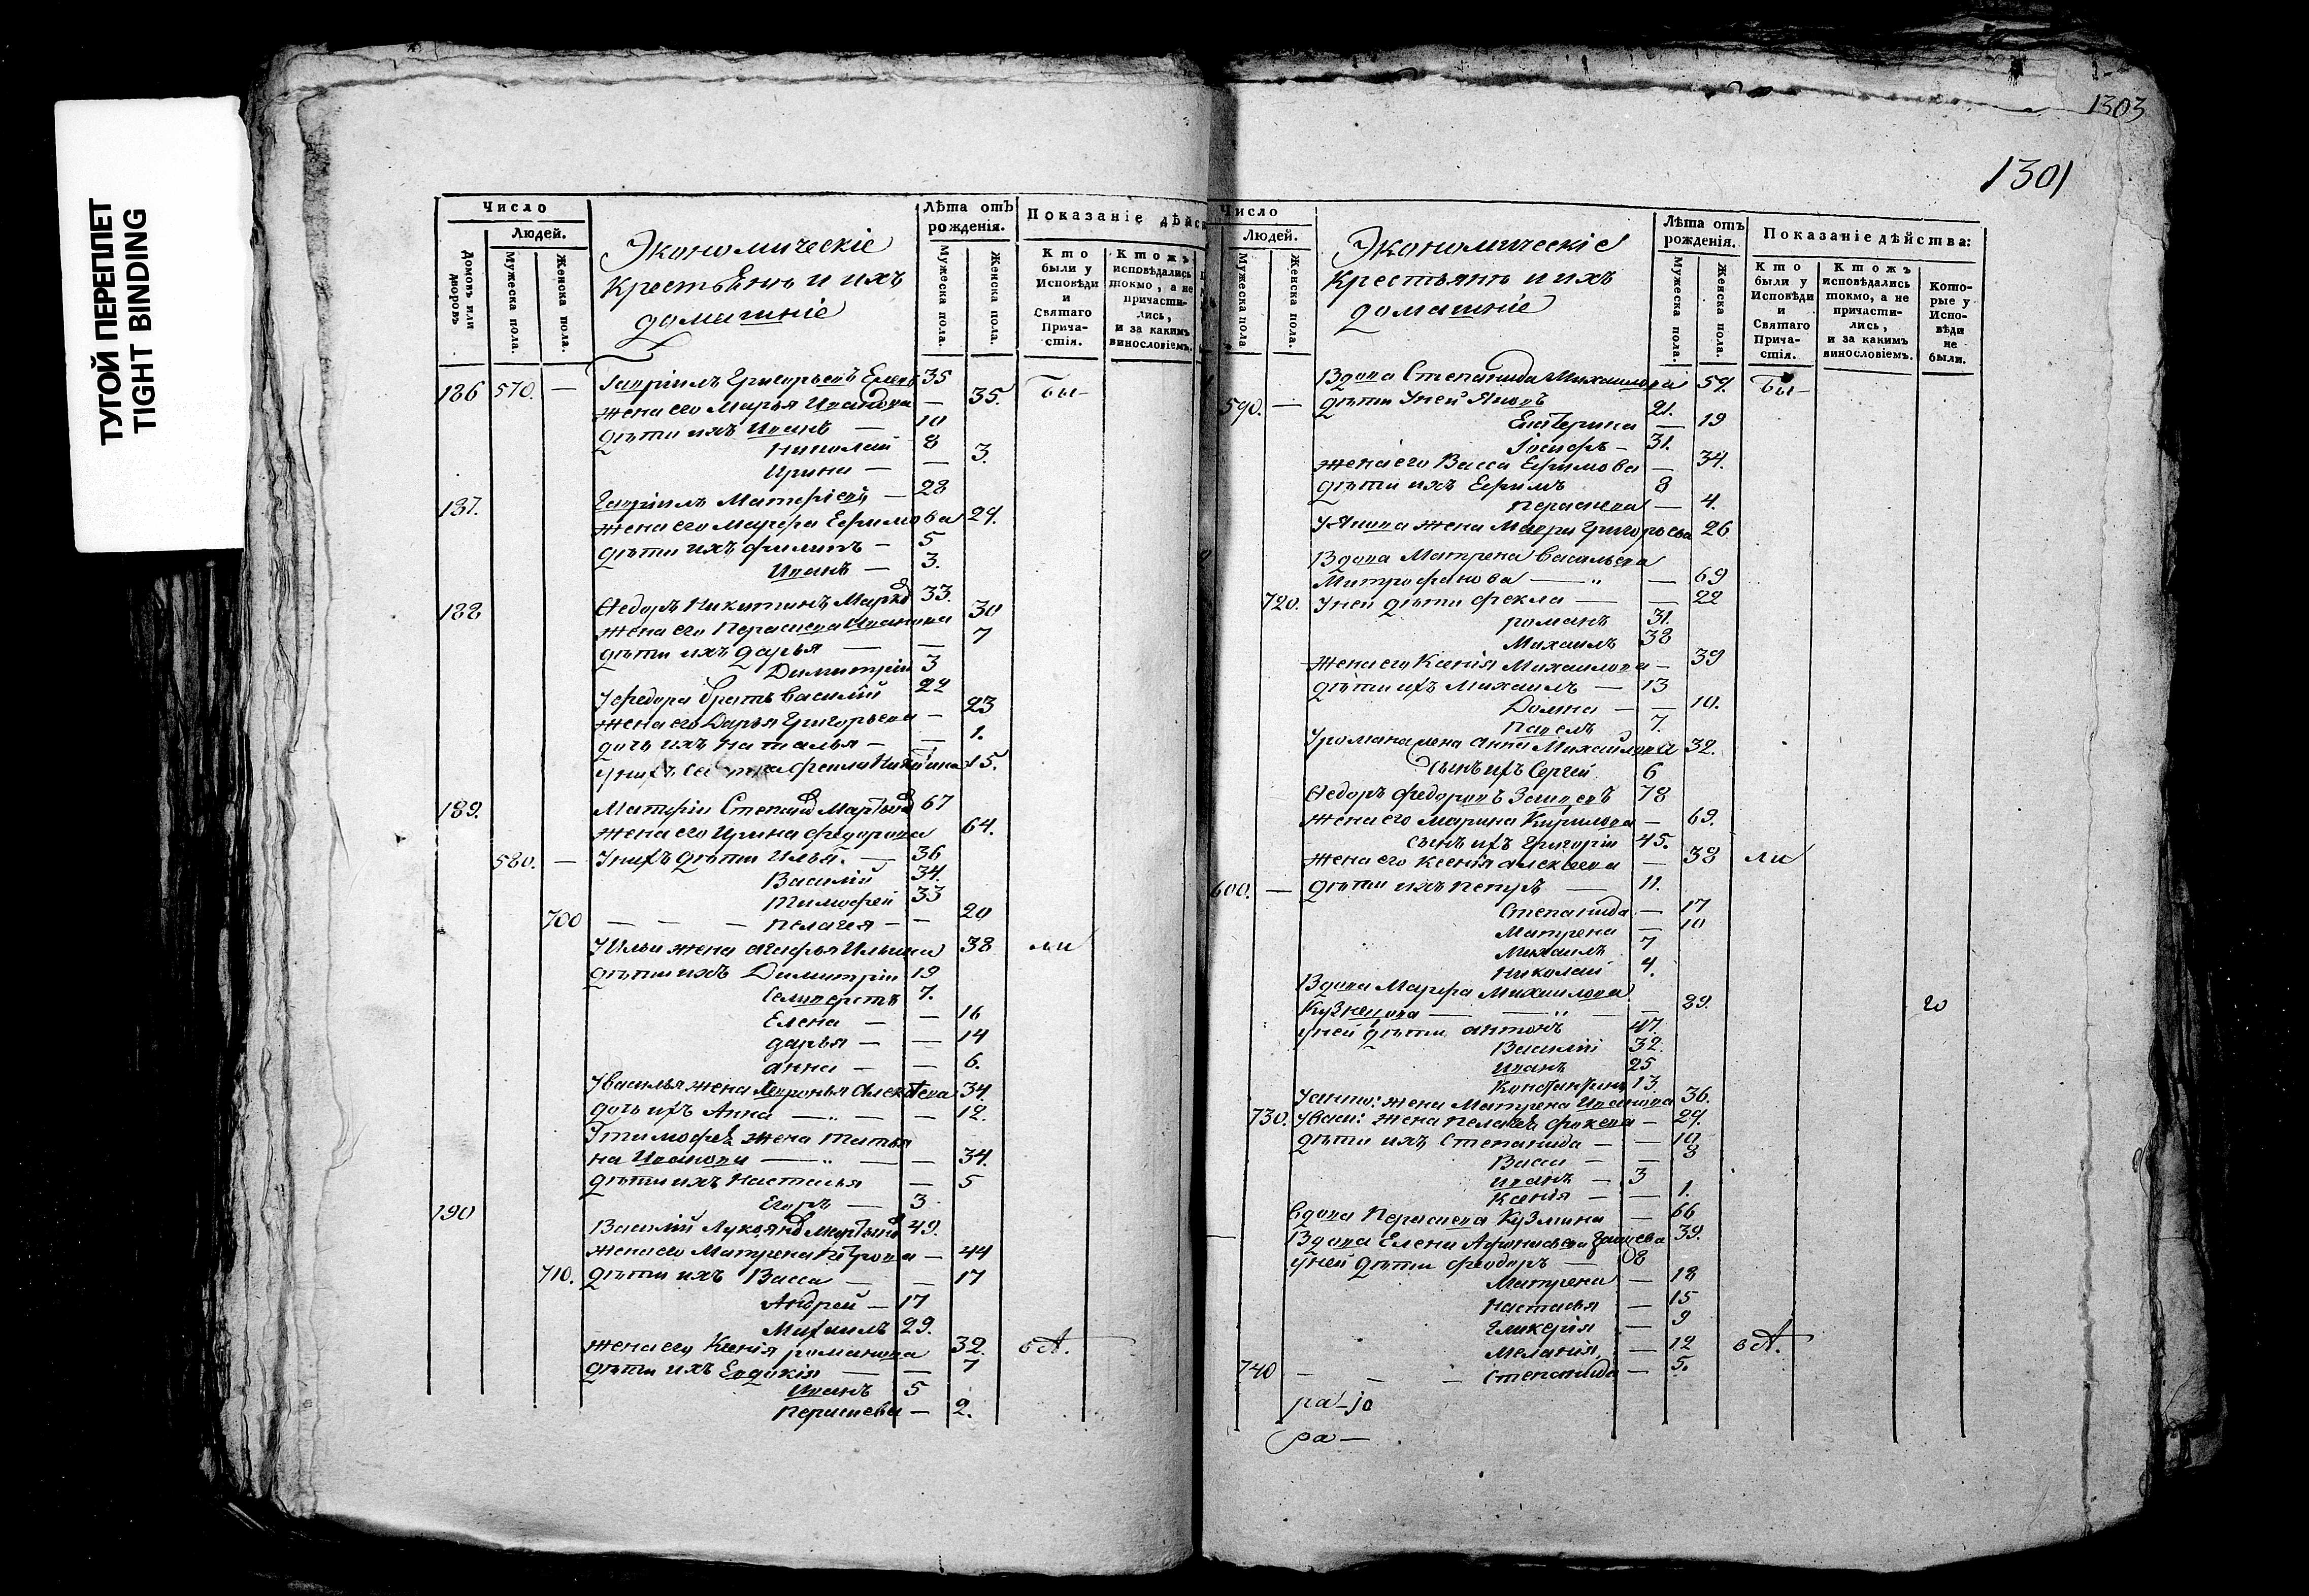 ТУГОЙ ПЕРЕПЛЕТ
TIGHT BINDING
1303
1301
Число
Людей.
Домовъ или дворовъ
Мужеска пола.
Женска пола.
Экономическіе
крестьянъ и ихъ
домашніе
Лѣта отъ рожденія.
Мужеска пола.
Женска пола.
Показаніе дѣйс
Кто были у Исповѣди и Святаго Причастія.
Ктожъ исповѣдались токмо, а не причастились, и за какимъ винословіемъ.
186 570. — Гавріилъ Григорьевъ 35 Бы-
жена его Марья Иванова — 35.
дѣти ихъ Иванъ — 10
Николай 8
Ирина — — 3.
187. Гавріилъ Матфіевъ — 28
жена его Марфа Ефимова 29.
дѣти ихъ Филипъ — 5
Иванъ — 3.
188 Ѳедоръ Никитинъ 33.
жена его Параскева Иванова 30
дѣти ихъ Дарья — — 7
Димитрій 3
У Федора братъ Василій 22
жена его Дарья Григорьева — 23
дочь ихъ Наталья — — 1.
У нихъ сестра Фекла Никитина 15.
189. Матфій Степановъ 67
жена его Ирина Федорова 64.
580. — У нихъ дѣти Илья. — 36
Василій 34.
Тимофей 33
700 — — — Пелагея — — 20
У Ильи жена Агафья Ильина 38 ли
дѣти ихъ Димитрій 19
Селиверстъ 7.
Елена — — 16
Дарья — — 14
Анна — — 6.
У Василья жена Алексѣева 34.
дочь ихъ Анна — — — 12.
У Тимофея жена Татья
на Иванова — — — 34.
дѣти ихъ Настасья — 5
Егоръ — 3
190
Василій 49.
жена его Матрена Петрова — 44
710. дѣти ихъ Васса — — 17
Андрей — 17
Михаилъ 29.
жена его Ксенія Романова 32.
дѣти ихъ Евдокія — — 7
Иванъ 5
Параскева — 2.
Число
Людей.
Мужеска пола
Женска пола.
Экономическіе
крестьянъ и ихъ
домашніе
Лѣта отъ рожденія.
Мужеска пола.
Женска пола.
Показаніе дѣйства:
Кто были у Исповѣди и Святаго Причастія.
Ктожъ исповѣдались токмо, а не причастились, и за какимъ винословіемъ.
Которые у Исповѣди не были.
Вдова Степанида Михаилова 59. Бы-
590. — дѣти у ней Яковъ 21.
Екатерина — 19
Іосифъ — 31.
жена его Васса Ефимова — 34.
дѣти ихъ Ефимъ 8
Параскева — 4.
У Якова жена Мавра Григорьева 26
Вдова Матрена Васильева
Митрофанова — — 69
720. У ней дѣти Фекла — — 22
Романъ 31.
Михаилъ 38
жена его Ксенія Михаилова — 39
дѣти ихъ Михаилъ — 13
Домна — — 10.
Павелъ 7.
У Романа жена Анна Михайлова 32.
сынъ ихъ Сергей 6
Ѳедоръ Федоровъ 78
жена его Марина Кирилова — 69.
сынъ ихъ Григорій 45.
жена его Ксенія Алексѣева — 38 ли
600. — дѣти ихъ Петръ — 11.
Степанида — 17
Матрена — 10
Михаилъ 7
Николай 4.
Вдова Марфа Михаилова
Кузнецова — — — — 89.
у ней дѣти Антонъ 47.
Василій 32
Иванъ 25
Константинъ 13
У Анто: жена Матрена Иванова 36.
730. У Васи: жена Пелагея Фокева — 29.
дѣти ихъ Степанида — — 10
Васса — — 8
Иванъ — 3
Ксенія — — 1.
Вдова Параскева Кузмина — 66
Вдова Елена Афонасьева 39.
у ней дѣти Феодоръ — 8
Матрена — 18
Настасья — 15
Гликерія — 9
Меланія, — 12
740 — — — Степанида — 5.
ра—